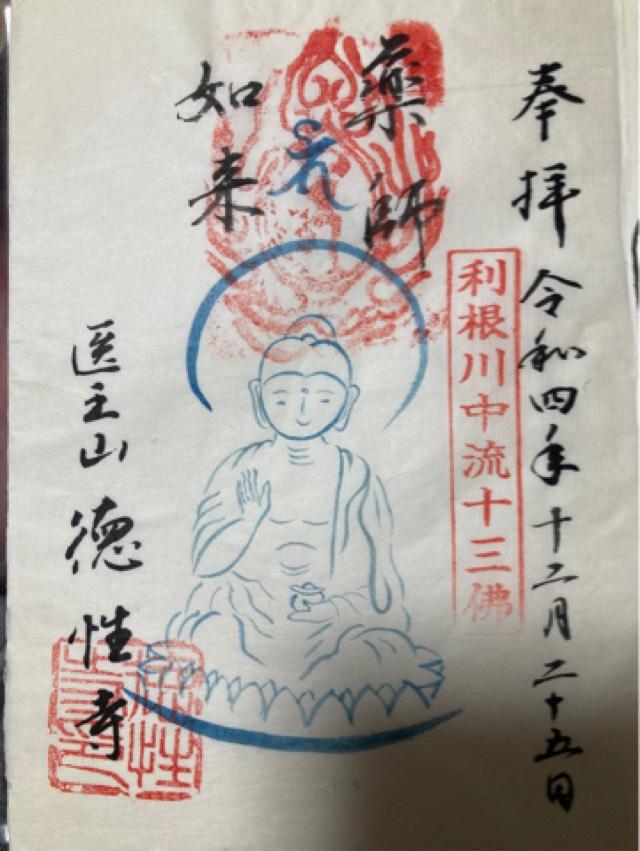 奉拝 令和四年十二月二十五日
利根川中流十三佛
薬師
如来
医王山 徳性寺